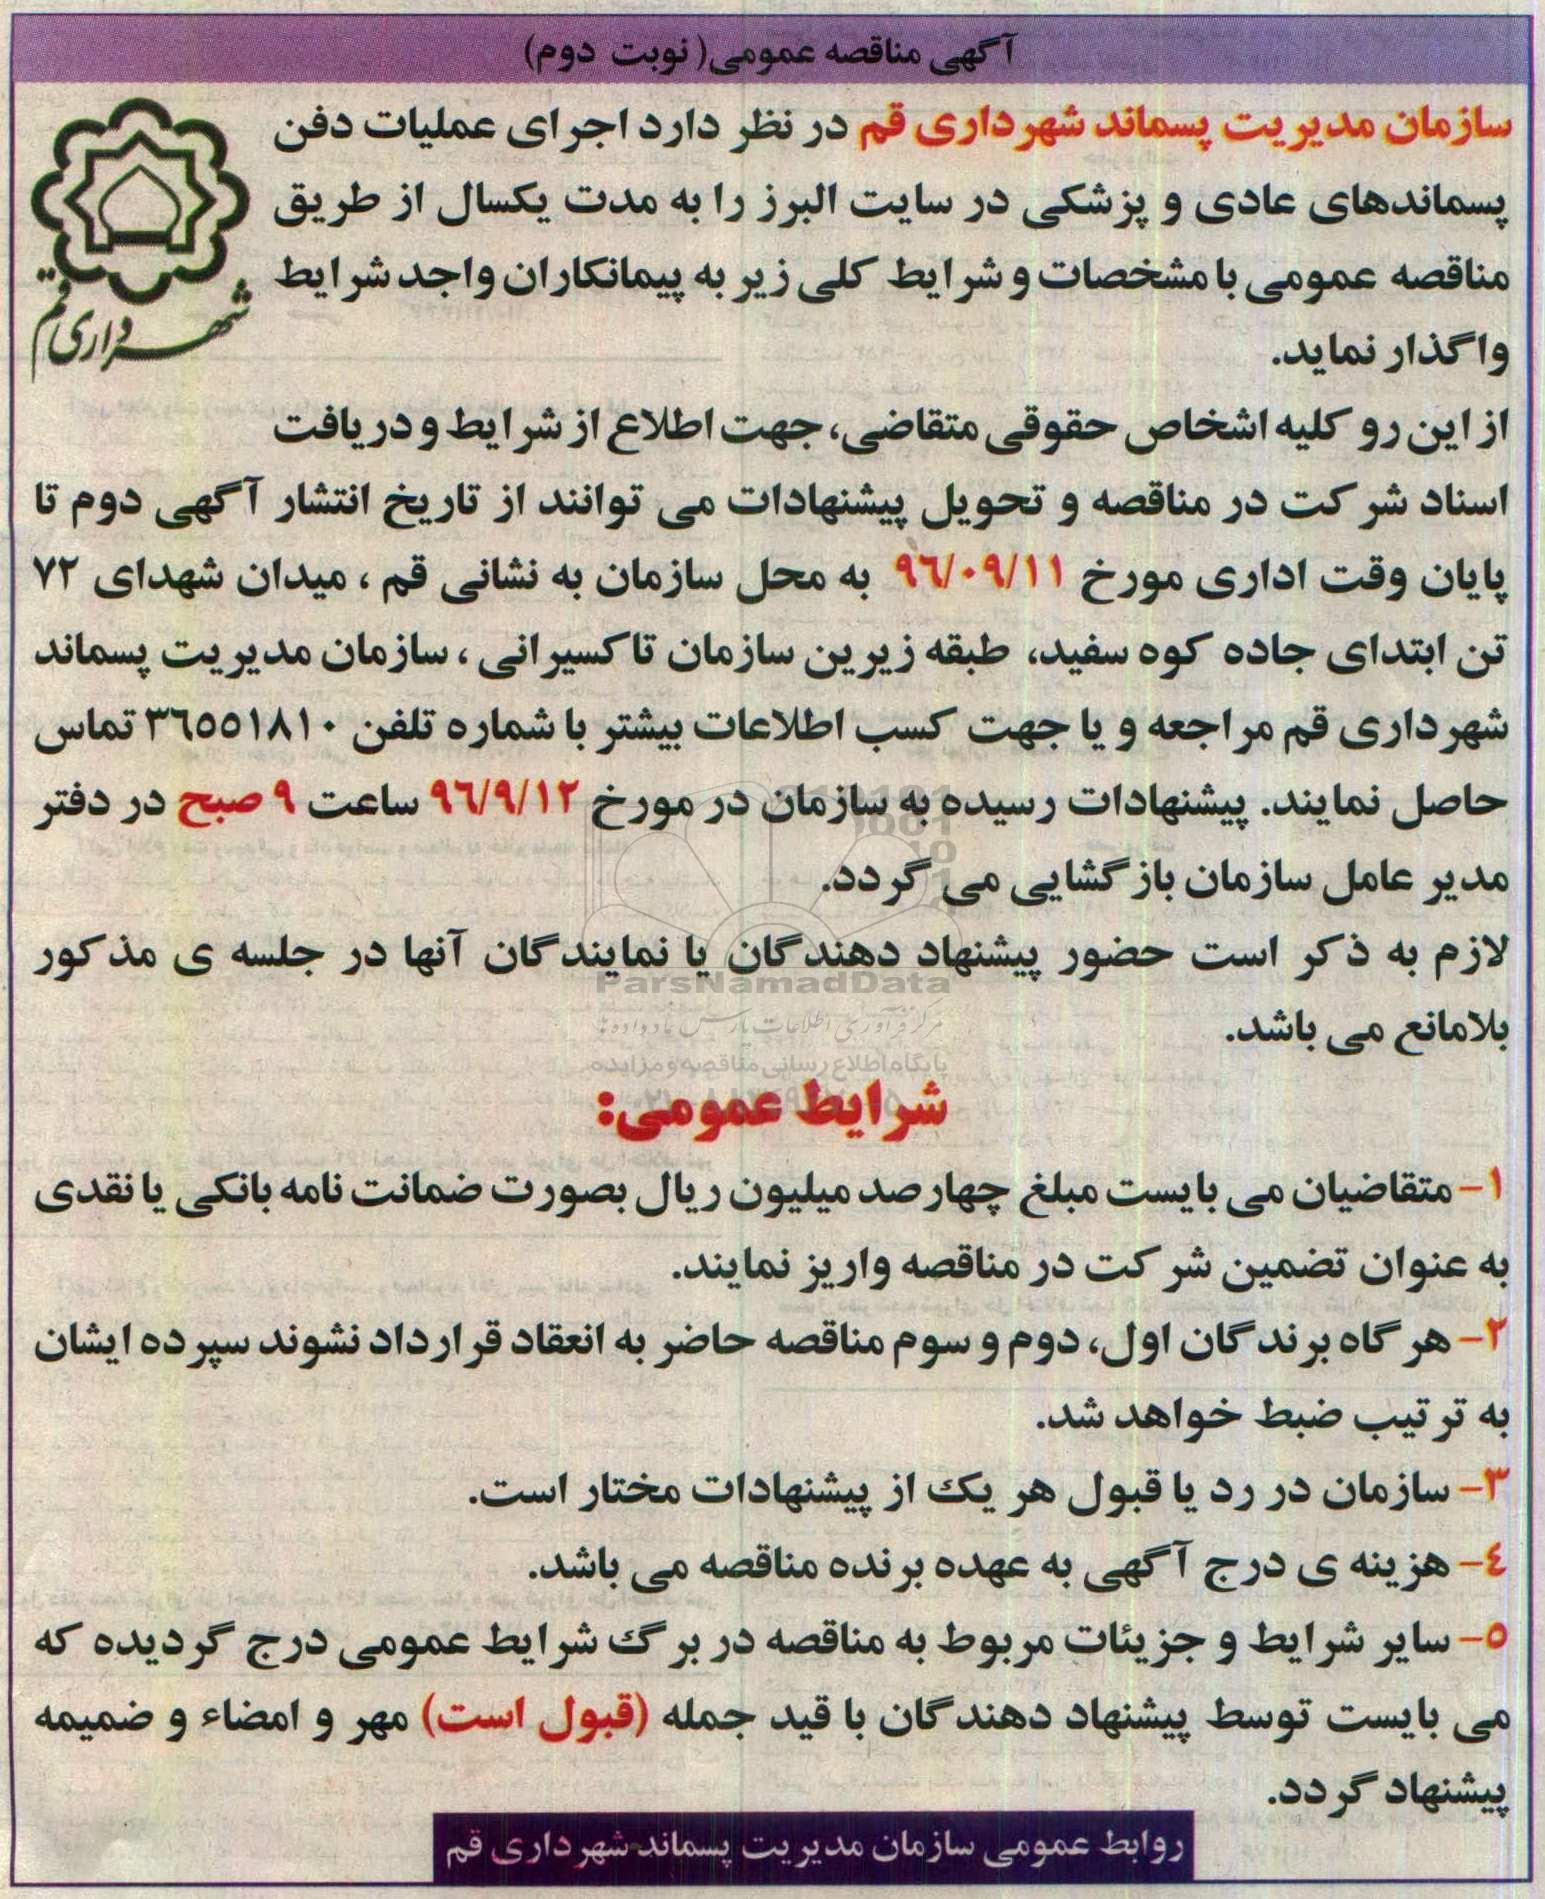 آگهی مناقصه عمومی( نوبت دوم)
سازمان مدیریت پسماند شهرداری قم در نظر دارد اجرای عملیات دفن
پسماندهای عادی و پزشکی در سایت البرز را به مدت یکسال از طریق
مناقصه عمومی با مشخصات و شرایط کلی زیر به پیمانکاران واجد شرایط
واگذار نماید.
شهرداری قم
از این رو کلیه اشخاص حقوقی متقاضی، جهت اطلاع از شرایط و دریافت
اسناد شرکت در مناقصه و تحویل پیشنهادات می توانند از تاریخ انتشار آگهی دوم تا
پایان وقت اداری مورخ ۹٦/۰۹/۱۱ به محل سازمان به نشانی قم ، میدان شهدای ۷۲
تن ابتدای جاده کوه سفید، طبقه زیرین سازمان تاکسیرانی ، سازمان مدیریت پسماند
شهرداری قم مراجعه و یا جهت کسب اطلاعات بیشتر با شماره تلفن ۳٦٥٥۱۸۱۰ تماس
حاصل نمایند. پیشنهادات رسیده به سازمان در مورخ ۹٦/۹/۱۲ ساعت ۹ صبح در دفتر
مدیر عامل سازمان بازگشایی می گردد.
لازم به ذکر است حضور پیشنهاد دهندگان یا نمایندگان آنها در جلسه ی مذکور
ParsNamadData
مرکز فرآوری اطلاعات پارس نماد داده ها
بلامانع می باشد.
پایگاه اطلاع رسانی مناقصه و مزایده
شرایط عمومی:
۱- متقاضیان می بایست مبلغ چهارصد میلیون ریال بصورت ضمانت نامه بانکی یا نقدی
به عنوان تضمین شرکت در مناقصه واریز نمایند.
۲- هر گاه برندگان اول، دوم و سوم مناقصه حاضر به انعقاد قرارداد نشوند سپرده ایشان
به ترتیب ضبط خواهد شد.
۳- سازمان در رد یا قبول هر یک از پیشنهادات مختار است.
٤- هزینه ی درج آگهی به عهده برنده مناقصه می باشد.
٥- سایر شرایط و جزیئات مربوط به مناقصه در برگ شرایط عمومی درج گردیده که
می بایست توسط پیشنهاد دهندگان با قید جمله (قبول است) مهر و امضاء و ضمیمه
پیشنهاد گردد.
روابط عمومی سازمان مدیریت پسماند شهرداری قم